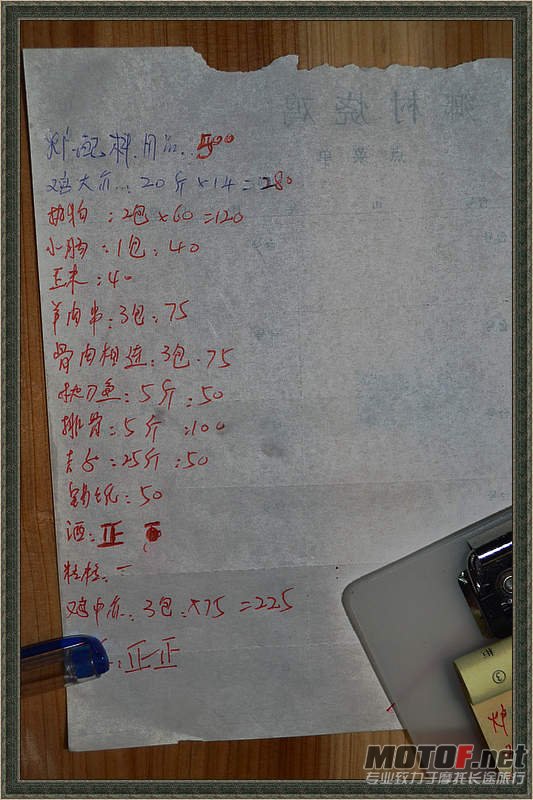 乡村烧鸡
点菜单
炉.配料.用品..500
鸡大亦..20斤×14=280
:2包×60=120
小肠:1包.40
玉米:40
羊肉串:3包.75
骨肉相连:3包.75
秋刀鱼:5斤.50
排骨:5斤:100
:25斤:50
锡纸:50
酒:正
粒粒.一
鸡中亦..3包.×75=225
:正正
③
炉
MOTOF.net
专业致力于摩托长途旅行